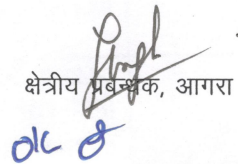 क्षेत्रीय प्रबन्धक, आगरा
o/c